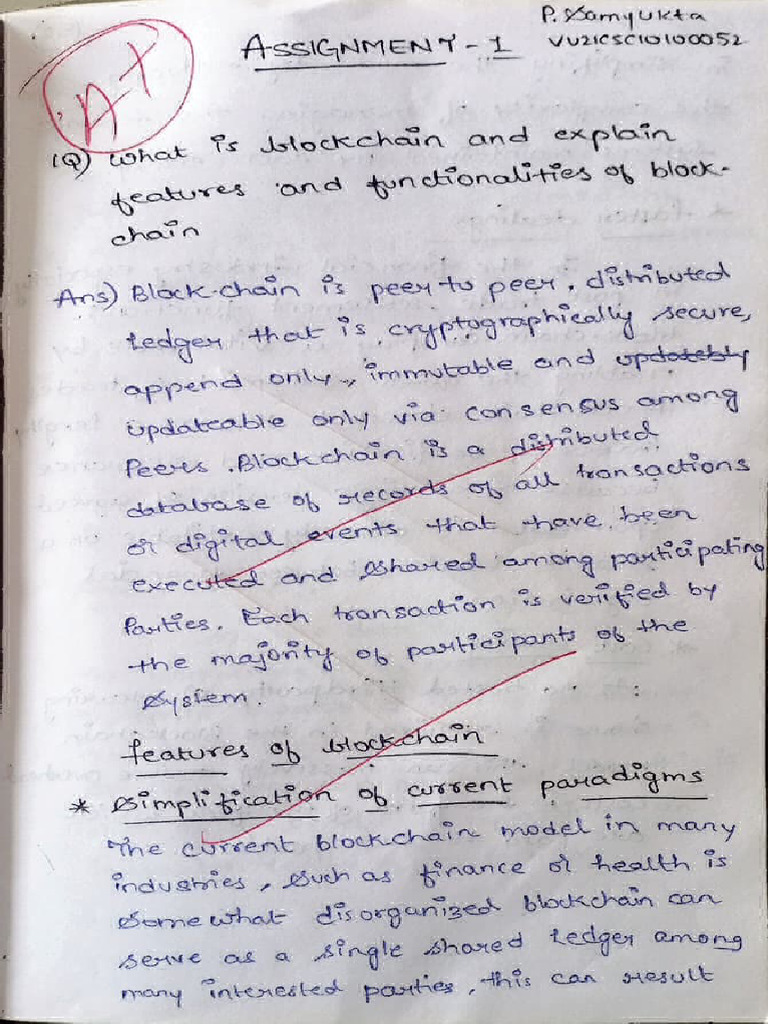 P. Samyukta
ASSIGNMENT-1
VU21CSCI0100052
A+
1Q) What is blockchain and explain
features and functionalities of block-
chain
Ans) Block-chain is peer to peer, distributed
Ledger that is cryptographically secure,
append only, immutable and updatebly
updateable only via consensus among
Peers. Blockchain is a distributed
database of records of all transactions
or digital events that have been
executed and shared among participating
Parties. Each transaction is verified by
the majority of participants of the
System.
features of blockchain
* Simplification of current paradigms
The current blockchain model in many
industries, such as finance or health is
Somewhat disorganized blockchain can
serve as a single shared ledger among
many interested parties, this can result